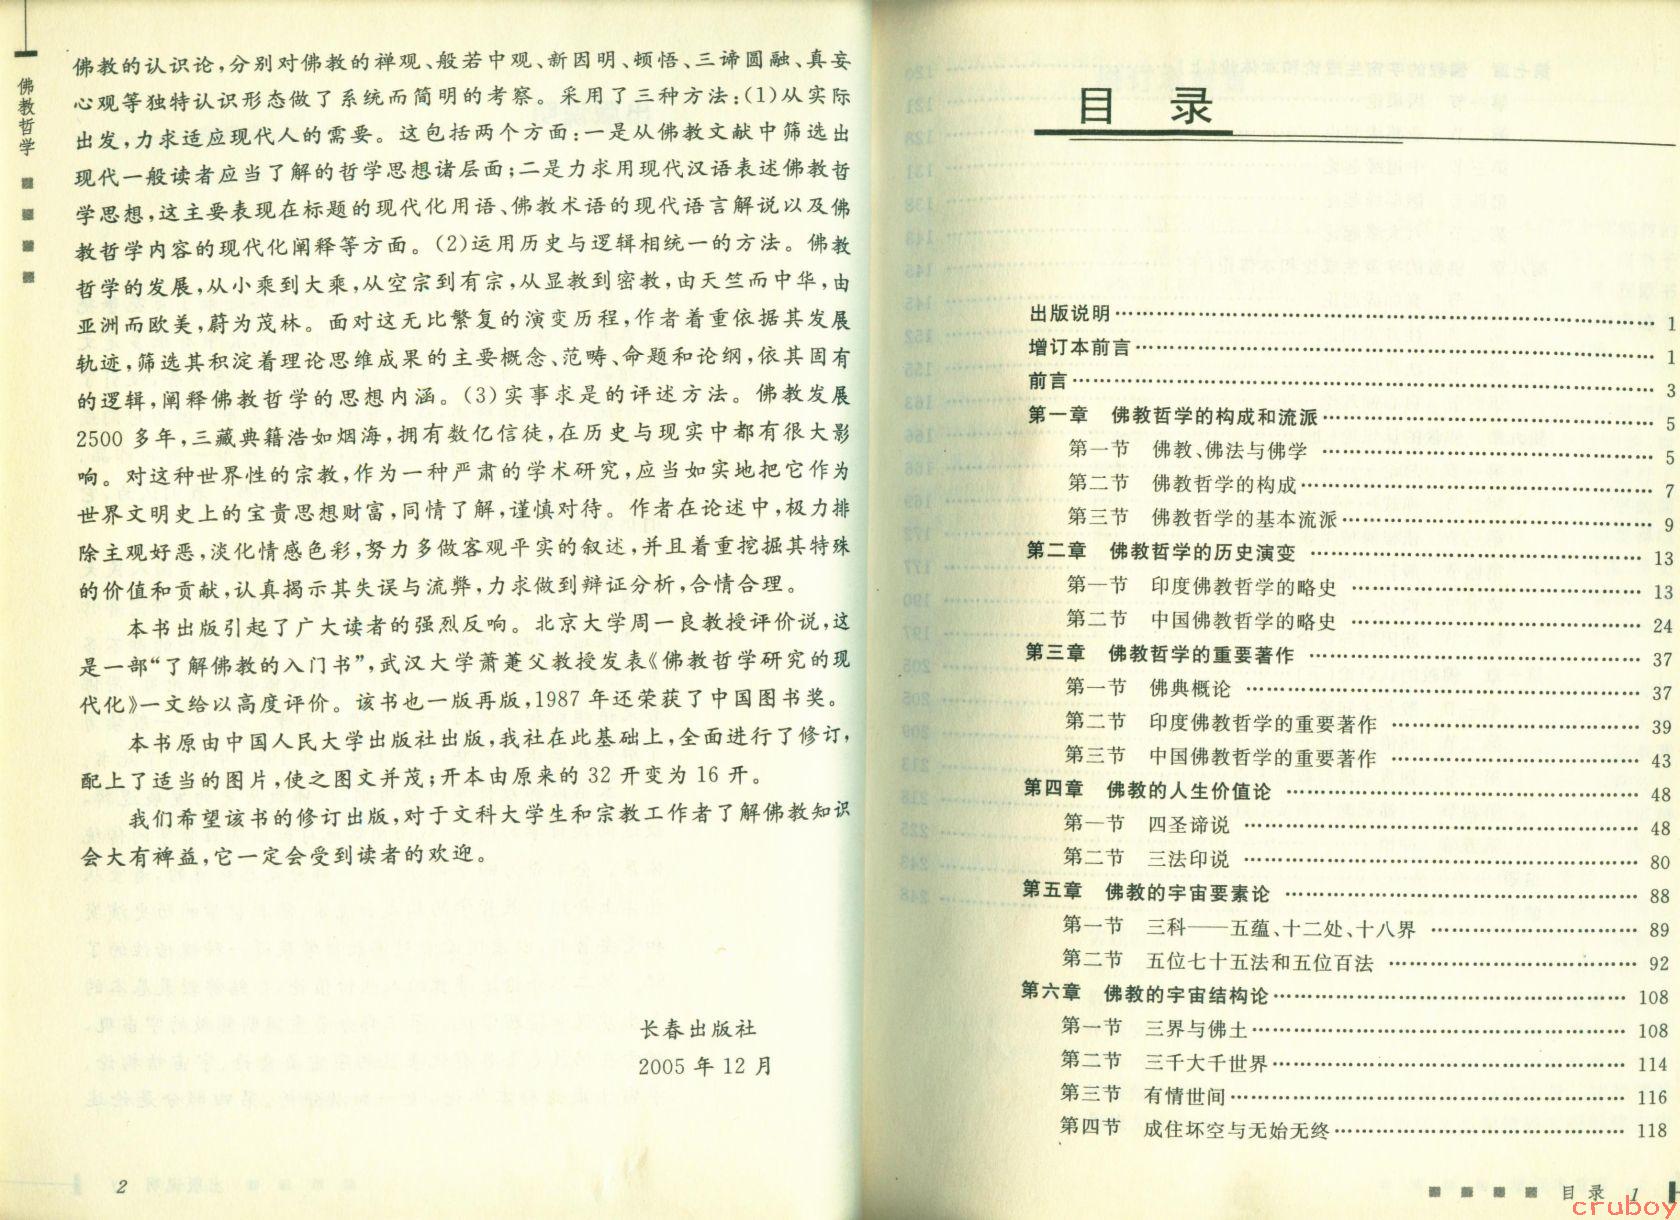 佛教哲学
佛教的认识论,分别对佛教的禅观、般若中观、新因明、顿悟、三谛圆融、真妄
心观等独特认识形态做了系统而简明的考察。采用了三种方法:(1)从实际
出发,力求适应现代人的需要。这包括两个方面:一是从佛教文献中筛选出
现代一般读者应当了解的哲学思想诸层面;二是力求用现代汉语表述佛教哲
学思想,这主要表现在标题的现代化用语、佛教术语的现代语言解说以及佛
教哲学内容的现代化阐释等方面。(2)运用历史与逻辑相统一的方法。佛教
哲学的发展,从小乘到大乘,从空宗到有宗,从显教到密教,由天竺而中华,由
亚洲而欧美,蔚为茂林。面对这无比繁复的演变历程,作者着重依据其发展
轨迹,筛选其积淀着理论思维成果的主要概念、范畴、命题和论纲,依其固有
的逻辑,阐释佛教哲学的思想内涵。(3)实事求是的评述方法。佛教发展
2500多年,三藏典籍浩如烟海,拥有数亿信徒,在历史与现实中都有很大影
响。对这种世界性的宗教,作为一种严肃的学术研究,应当如实地把它作为
世界文明史上的宝贵思想财富,同情了解,谨慎对待。作者在论述中,极力排
除主观好恶,淡化情感色彩,努力多做客观平实的叙述,并且着重挖掘其特殊
的价值和贡献,认真揭示其失误与流弊,力求做到辩证分析,合情合理。
本书出版引起了广大读者的强烈反响。北京大学周一良教授评价说,这
是一部“了解佛教的入门书”,武汉大学萧萐父教授发表《佛教哲学研究的现
代化》一文给以高度评价。该书也一版再版,1987年还荣获了中国图书奖。
本书原由中国人民大学出版社出版,我社在此基础上,全面进行了修订,
配上了适当的图片,使之图文并茂;开本由原来的32开变为16开。
我们希望该书的修订出版,对于文科大学生和宗教工作者了解佛教知识
会大有裨益,它一定会受到读者的欢迎。
长春出版社
2005年12月
2
目 录
出版说明 …… 1
增订本前言 …… 1
前言 …… 3
第一章 佛教哲学的构成和流派 …… 5
第一节 佛教、佛法与佛学 …… 5
第二节 佛教哲学的构成 …… 7
第三节 佛教哲学的基本流派 …… 9
第二章 佛教哲学的历史演变 …… 13
第一节 印度佛教哲学的略史 …… 13
第二节 中国佛教哲学的略史 …… 24
第三章 佛教哲学的重要著作 …… 37
第一节 佛典概论 …… 37
第二节 印度佛教哲学的重要著作 …… 39
第三节 中国佛教哲学的重要著作 …… 43
第四章 佛教的人生价值论 …… 48
第一节 四圣谛说 …… 48
第二节 三法印说 …… 80
第五章 佛教的宇宙要素论 …… 88
第一节 三科——五蕴、十二处、十八界 …… 89
第二节 五位七十五法和五位百法 …… 92
第六章 佛教的宇宙结构论 …… 108
第一节 三界与佛土 …… 108
第二节 三千大千世界 …… 114
第三节 有情世间 …… 116
第四节 成住坏空与无始无终 …… 118
目 录 1
cruboy